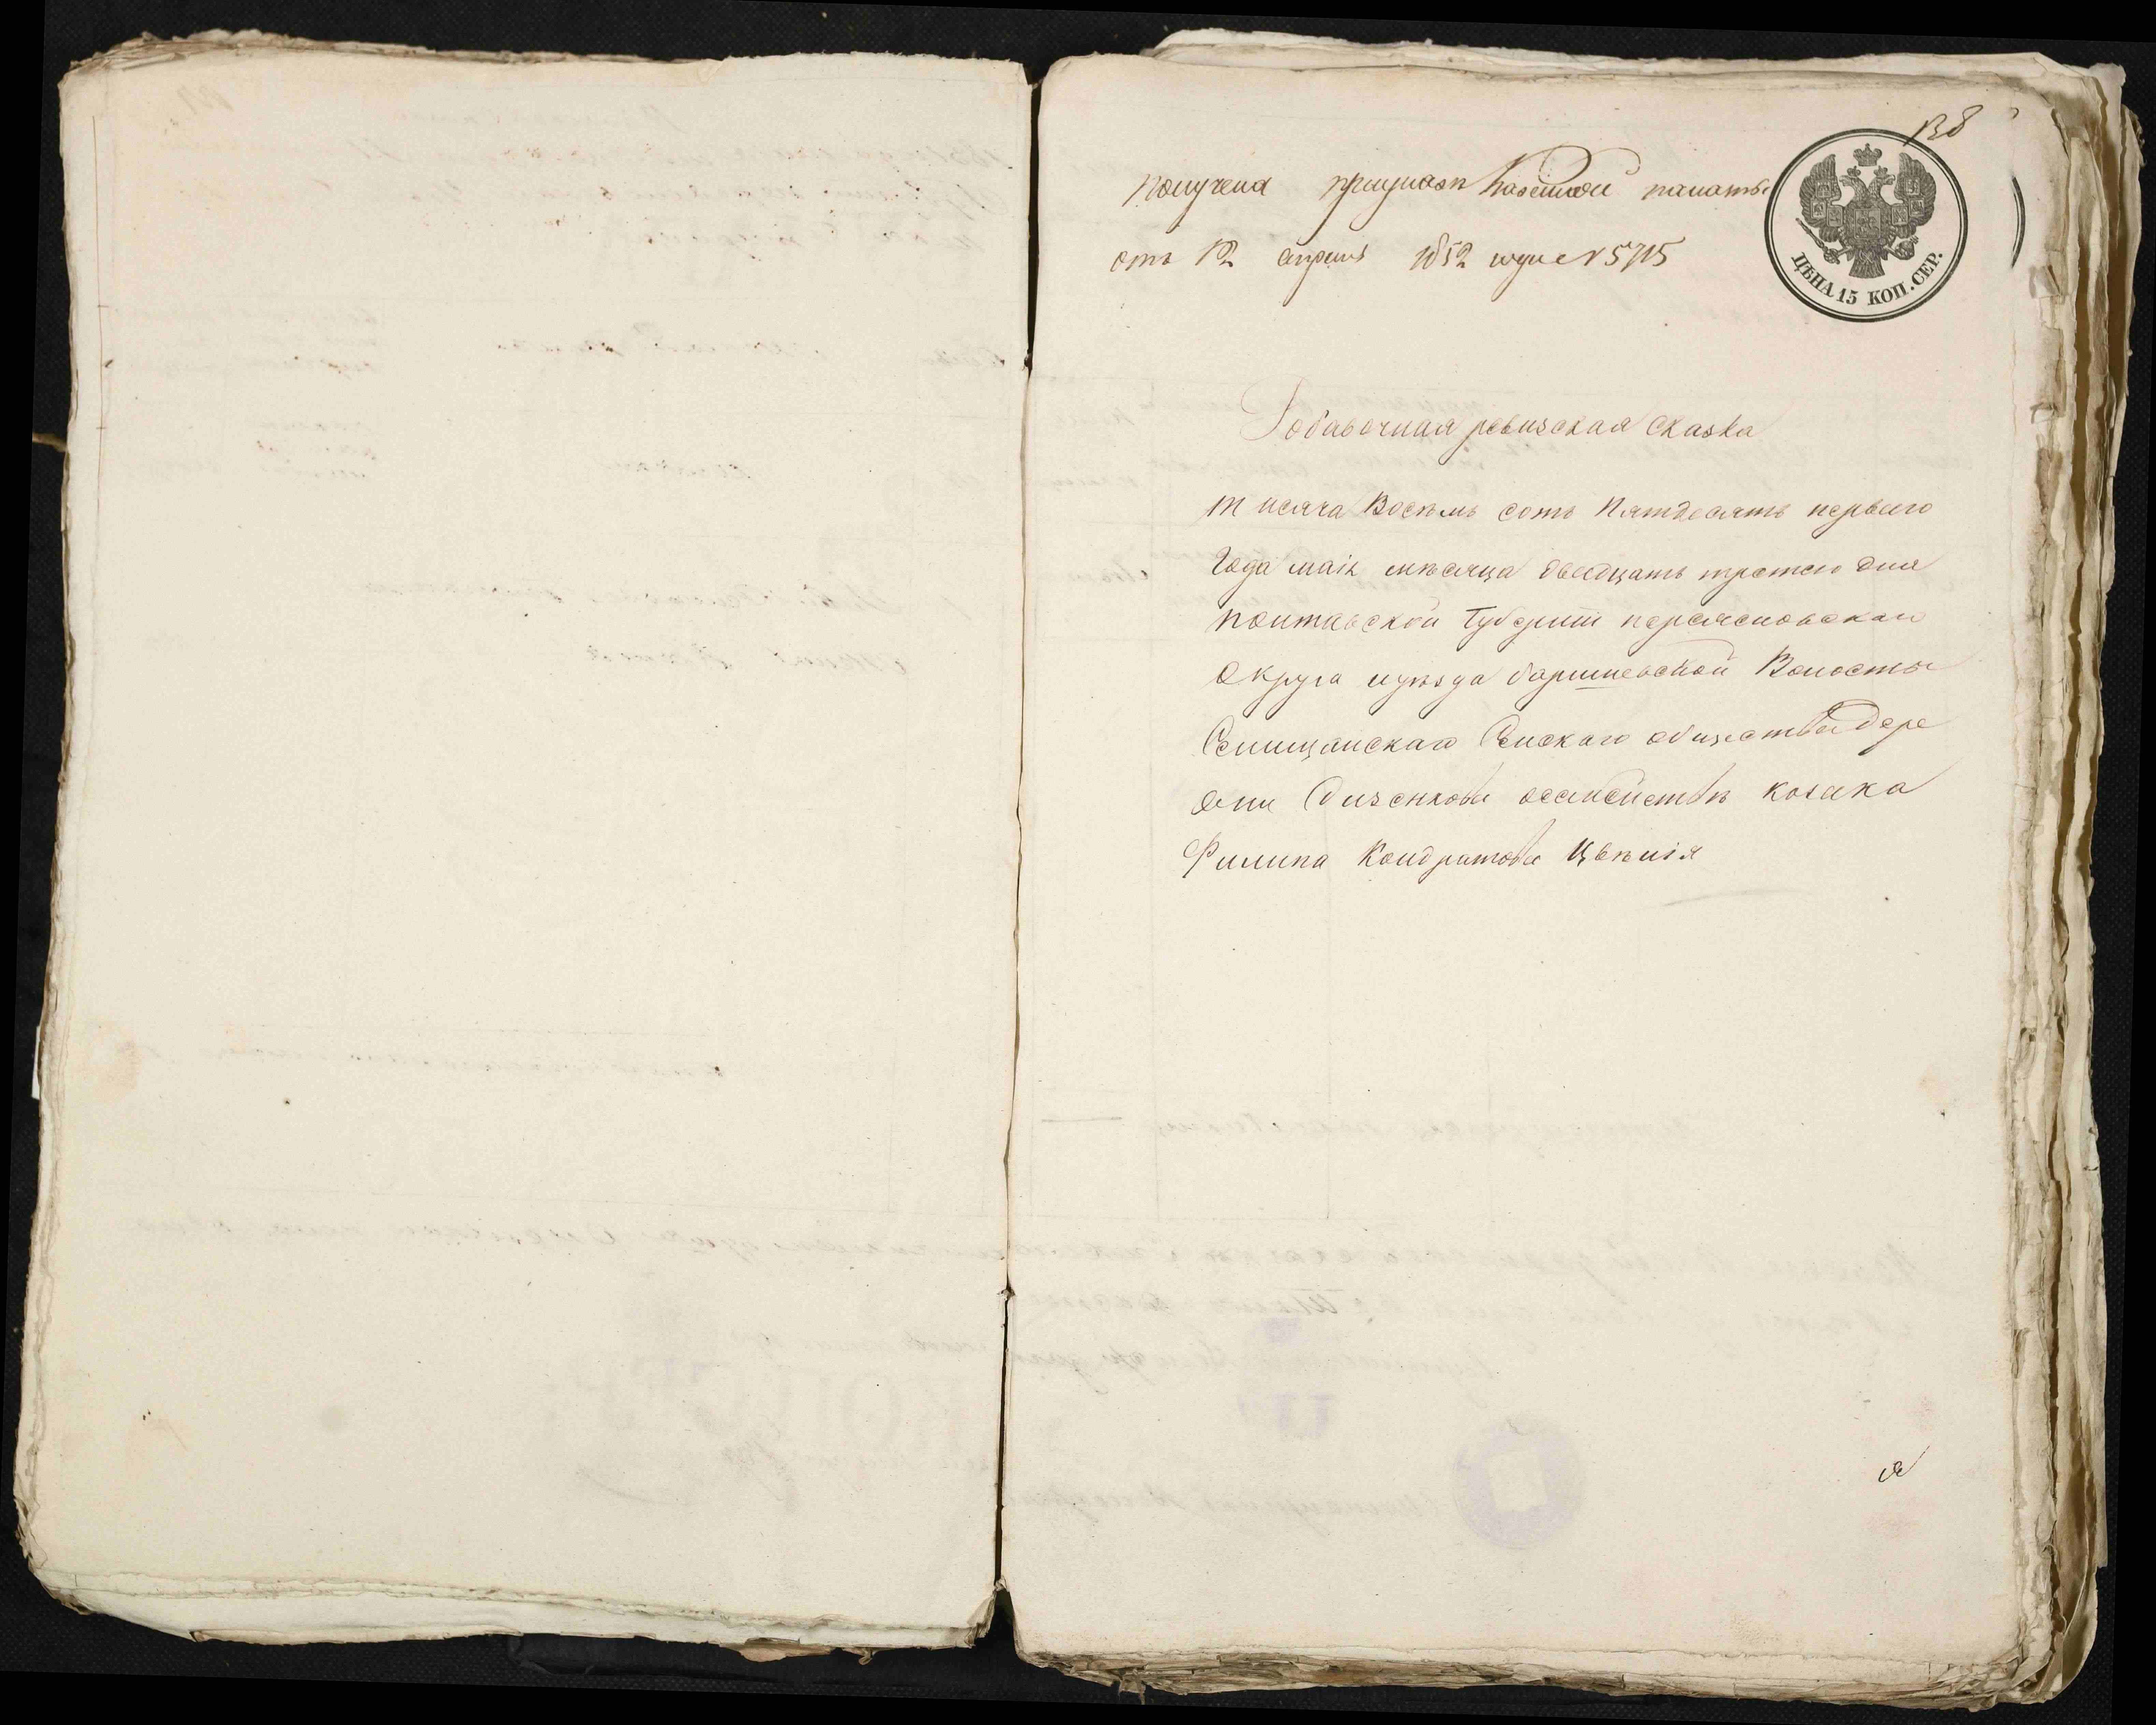 138
получена при указе казенной палаты
отъ 12 апреля 1852 года № 5715
ЦѢНА 15 КОП. СЕР.
Добавочная ревизская сказка
тисяча восемь сотъ пятдесятъ первого
года маія мѣсяца двадцать третего дня
полтавской губернии переясловскаго
округа иуѣзда баришевской волосты
Селищанскаго Селскаго общества дере
вни осемействѣ козака
Филипа Кондратова Цвѣлія